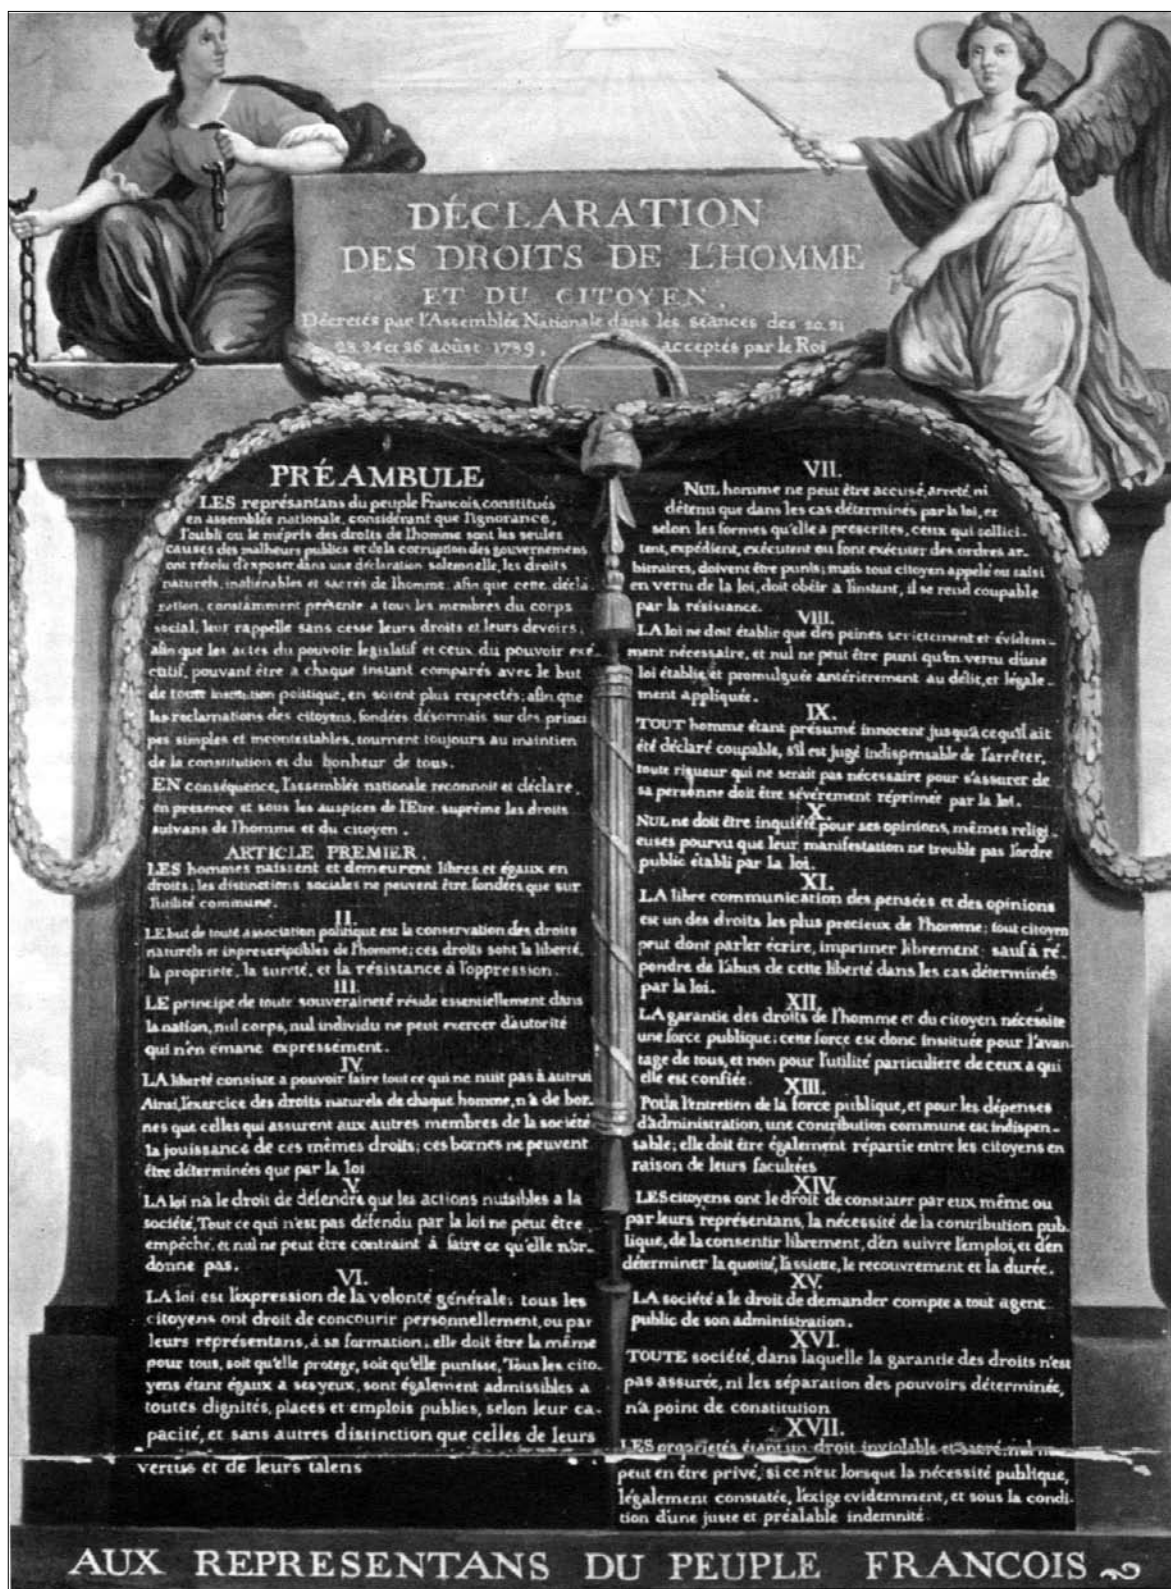 DÉCLARATION
DES DROITS DE L'HOMME
ET DU CITOYEN,
Décretés par l'Assemblée Nationale dans les séances des 20. 21
23. 24 et 26 aoûst 1789, acceptés par le Roi
PRÉAMBULE
LES représentans du peuple Francois, constitués
en assemblée nationale, considérant que l'ignorance,
l'oubli ou le mépris des droits de l'homme sont les seules
causes des malheurs publics et de la corruption des gouvernemens
ont résolu d'exposer dans une déclaration solemnelle, les droits
naturels, inaliénables et sacrés de l'homme, afin que cette décla
ration, constamment présente a tous les membres du corps
social, leur rappelle sans cesse leurs droits et leurs devoirs,
afin que les actes du pouvoir legislatif et ceux du pouvoir exé-
cutif, pouvant être a chaque instant comparés avec le but
de toute institution politique, en soient plus respectés; afin que
les reclamations des citoyens, fondées désormais sur des princi
pes simples et incontestables, tournent toujours au maintien
de la constitution et du bonheur de tous.
EN conséquence, l'assemblée nationale reconnoit et déclare,
en presence et sous les auspices de l'Etre suprême les droits
suivans de l'homme et du citoyen.
ARTICLE PREMIER.
LES hommes naissent et demeurent libres et égaux en
droits; les distinctions sociales ne peuvent être fondées que sur
l'utilité commune.
II.
LE but de toute association politique est la conservation des droits
naturels et inprescripibles de l'homme; ces droits sont la liberté,
la propriete, la sureté, et la résistance à l'oppression.
III.
LE principe de toute souveraineté réside essentiellement dans
la nation, nul corps, nul individu ne peut exercer d'autorité
qui n'en émane expressement.
IV.
LA liberté consiste a pouvoir faire tout ce qui ne nuit pas à autrui
Ainsi, l'exercice des droits naturels de chaque homme, n'à de bor-
nes que celles qui assurent aux autres membres de la société
la jouissance de ces mêmes droits; ces bornes ne peuvent
être déterminées que par la loi
V.
LA loi n'a le droit de défendre que les actions nuisibles a la
société, Tout ce qui n'est pas défendu par la loi ne peut être
empêché, et nul ne peut être contraint à faire ce qu'elle n'or-
donne pas.
VI.
LA loi est l'expression de la volonté générale; tous les
citoyens ont droit de concourir personnellement, ou par
leurs représentans, à sa formation; elle doit être la même
pour tous, soit qu'elle protege, soit qu'elle punisse, Tous les cito-
yens étant égaux a ses yeux, sont également admissibles a
toutes dignités, places et emplois publics, selon leur ca-
pacité, et sans autres distinction que celles de leurs
vertus et de leurs talens
VII.
NUL homme ne peut être accusé, arreté, ni
détenu que dans les cas déterminés par la loi, et
selon les formes qu'elle a prescrites, ceux qui sollici-
tent, expédient, exécutent ou font exécuter des ordres ar-
bitraires, doivent être punis; mais tout citoyen appelé ou saisi
en vertu de la loi, doit obéir a l'instant, il se rend coupable
par la résistance.
VIII.
LA loi ne doit établir que des peines strictement et évidem-
ment nécessaire, et nul ne peut être puni qu'en vertu d'une
loi établie et promulguée antérierement au délit, et légale-
ment appliquée.
IX.
TOUT homme étant présumé innocent jusqu'à ce qu'il ait
été déclaré coupable, s'il est jugé indispensable de l'arrêter,
toute rigueur qui ne serait pas nécessaire pour s'assurer de
sa personne doit être sévérement réprimée par la loi.
X.
NUL ne doit être inquiété pour ses opinions, mêmes religi-
euses pourvu que leur manifestation ne trouble pas l'ordre
public établi par la loi.
XI.
LA libre communication des pensées et des opinions
est un des droits les plus precieux de l'homme; tout citoyen
peut dont parler écrire, imprimer librement, sauf à ré-
pondre de l'abus de cette liberté dans les cas déterminés
par la loi.
XII.
LA garantie des droits de l'homme et du citoyen nécessite
une force publique; cette force est donc instituée pour l'avan-
tage de tous, et non pour l'utilité particuliere de ceux a qui
elle est confiée.
XIII.
POUR l'entretien de la force publique, et pour les dépenses
d'administration, une contribution commune est indispen-
sable; elle doit être également répartie entre les citoyens en
raison de leurs facultées
XIV.
LES citoyens ont le droit de constater par eux même ou
par leurs représentans, la nécessité de la contribution pub-
lique, de la consentir librement, d'en suivre l'emploi, et d'en
déterminer la quotité, l'assiette, le recouvrement et la durée.
XV.
LA société a le droit de demander compte a tout agent
public de son administration.
XVI.
TOUTE société, dans laquelle la garantie des droits n'est
pas assurée, ni les séparation des pouvoirs déterminée,
n'a point de constitution
XVII.
LES propriétés étant un droit inviolable et sacré, nul
peut en être privé, si ce n'est lorsque la nécessité publique,
légalement constatée, l'exige evidemment, et sous la condi-
tion d'une juste et préalable indemnité.
AUX REPRESENTANS DU PEUPLE FRANCOIS